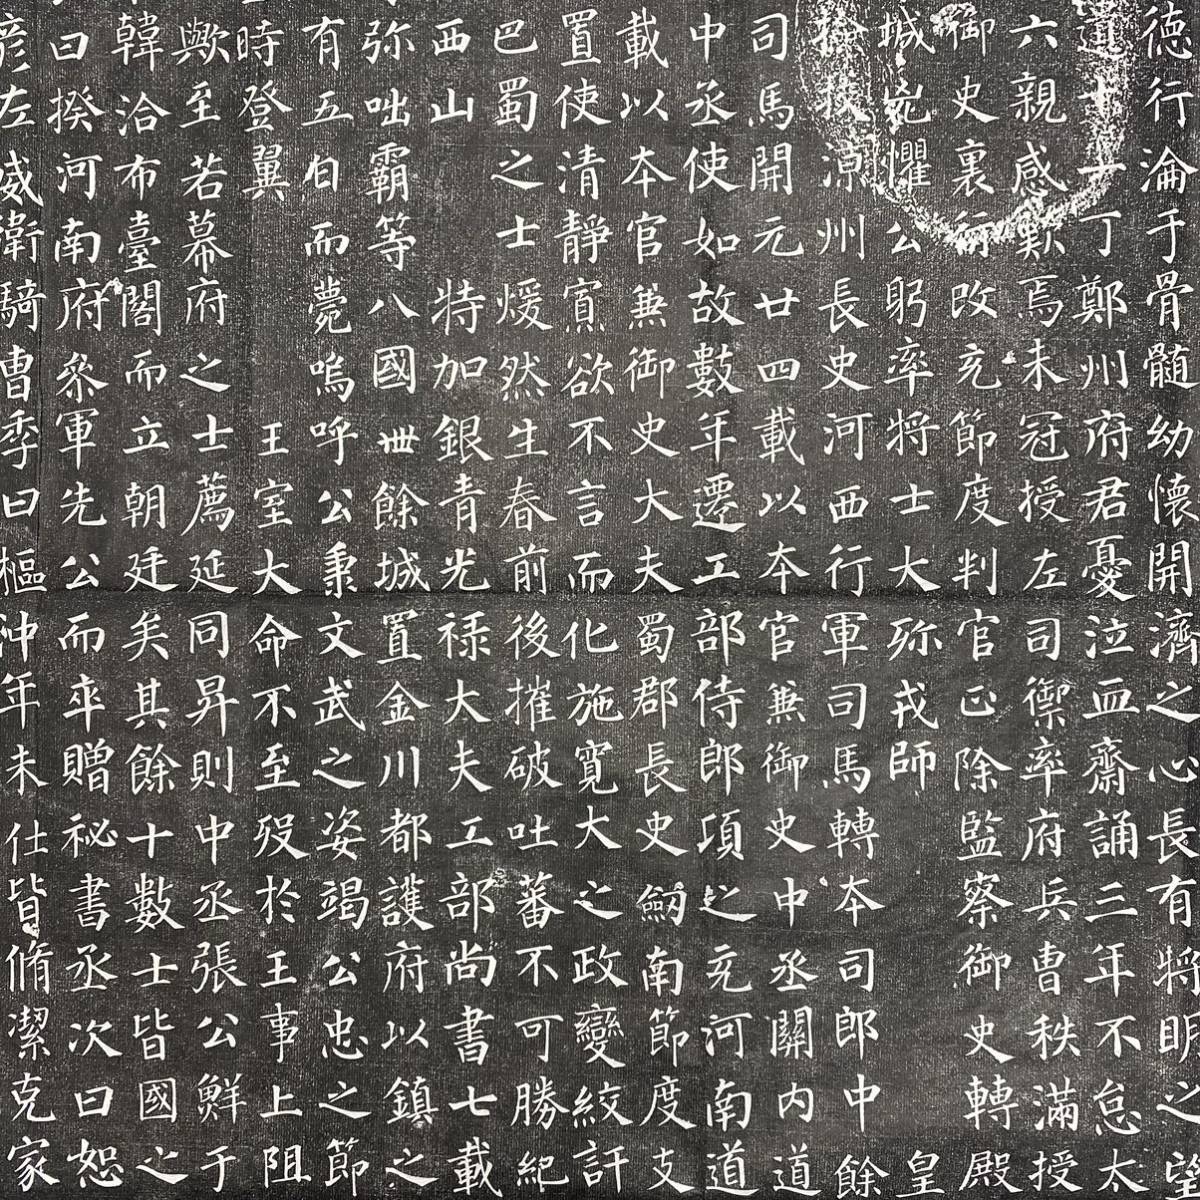 德行淪于骨髓幼懷開濟之心長有將明之望
丁鄭州府君憂泣血齋誦三年不怠太
六親感歎焉未冠授左司禦率府兵曹秩滿授
御史裏行改充節度判官正除監察御史轉殿
城兇懼公躬率將士大殄戎師 皇
涼州長史河西行軍司馬轉本司郎中餘
司馬開元廿四載以本官兼御史中丞關内道
中丞使如故數年遷工部侍郎項之充河南道
載以本官兼御史大夫蜀郡長史劒南節度支
置使清靜寡欲不言而化施寬大之政變絞訐
巴蜀之士煖然生春前後摧破吐蕃不可勝紀
西山 特加銀青光祿大夫工部尚書七載
弥咄霸等八國卌餘城置金川都護府以鎮之
有五 而薨嗚呼公秉文武之姿竭公忠之節
時登翼 王室大命不至歿於王事上阻
歟至若幕府之士薦延同昇則中丞張公鮮于
韓洽布臺閣而立朝廷矣其餘十數士皆國之
曰揆河南府參軍先公而卒贈祕書丞次曰恕
彥左威衛騎曹季曰樞沖年未仕皆脩潔克家